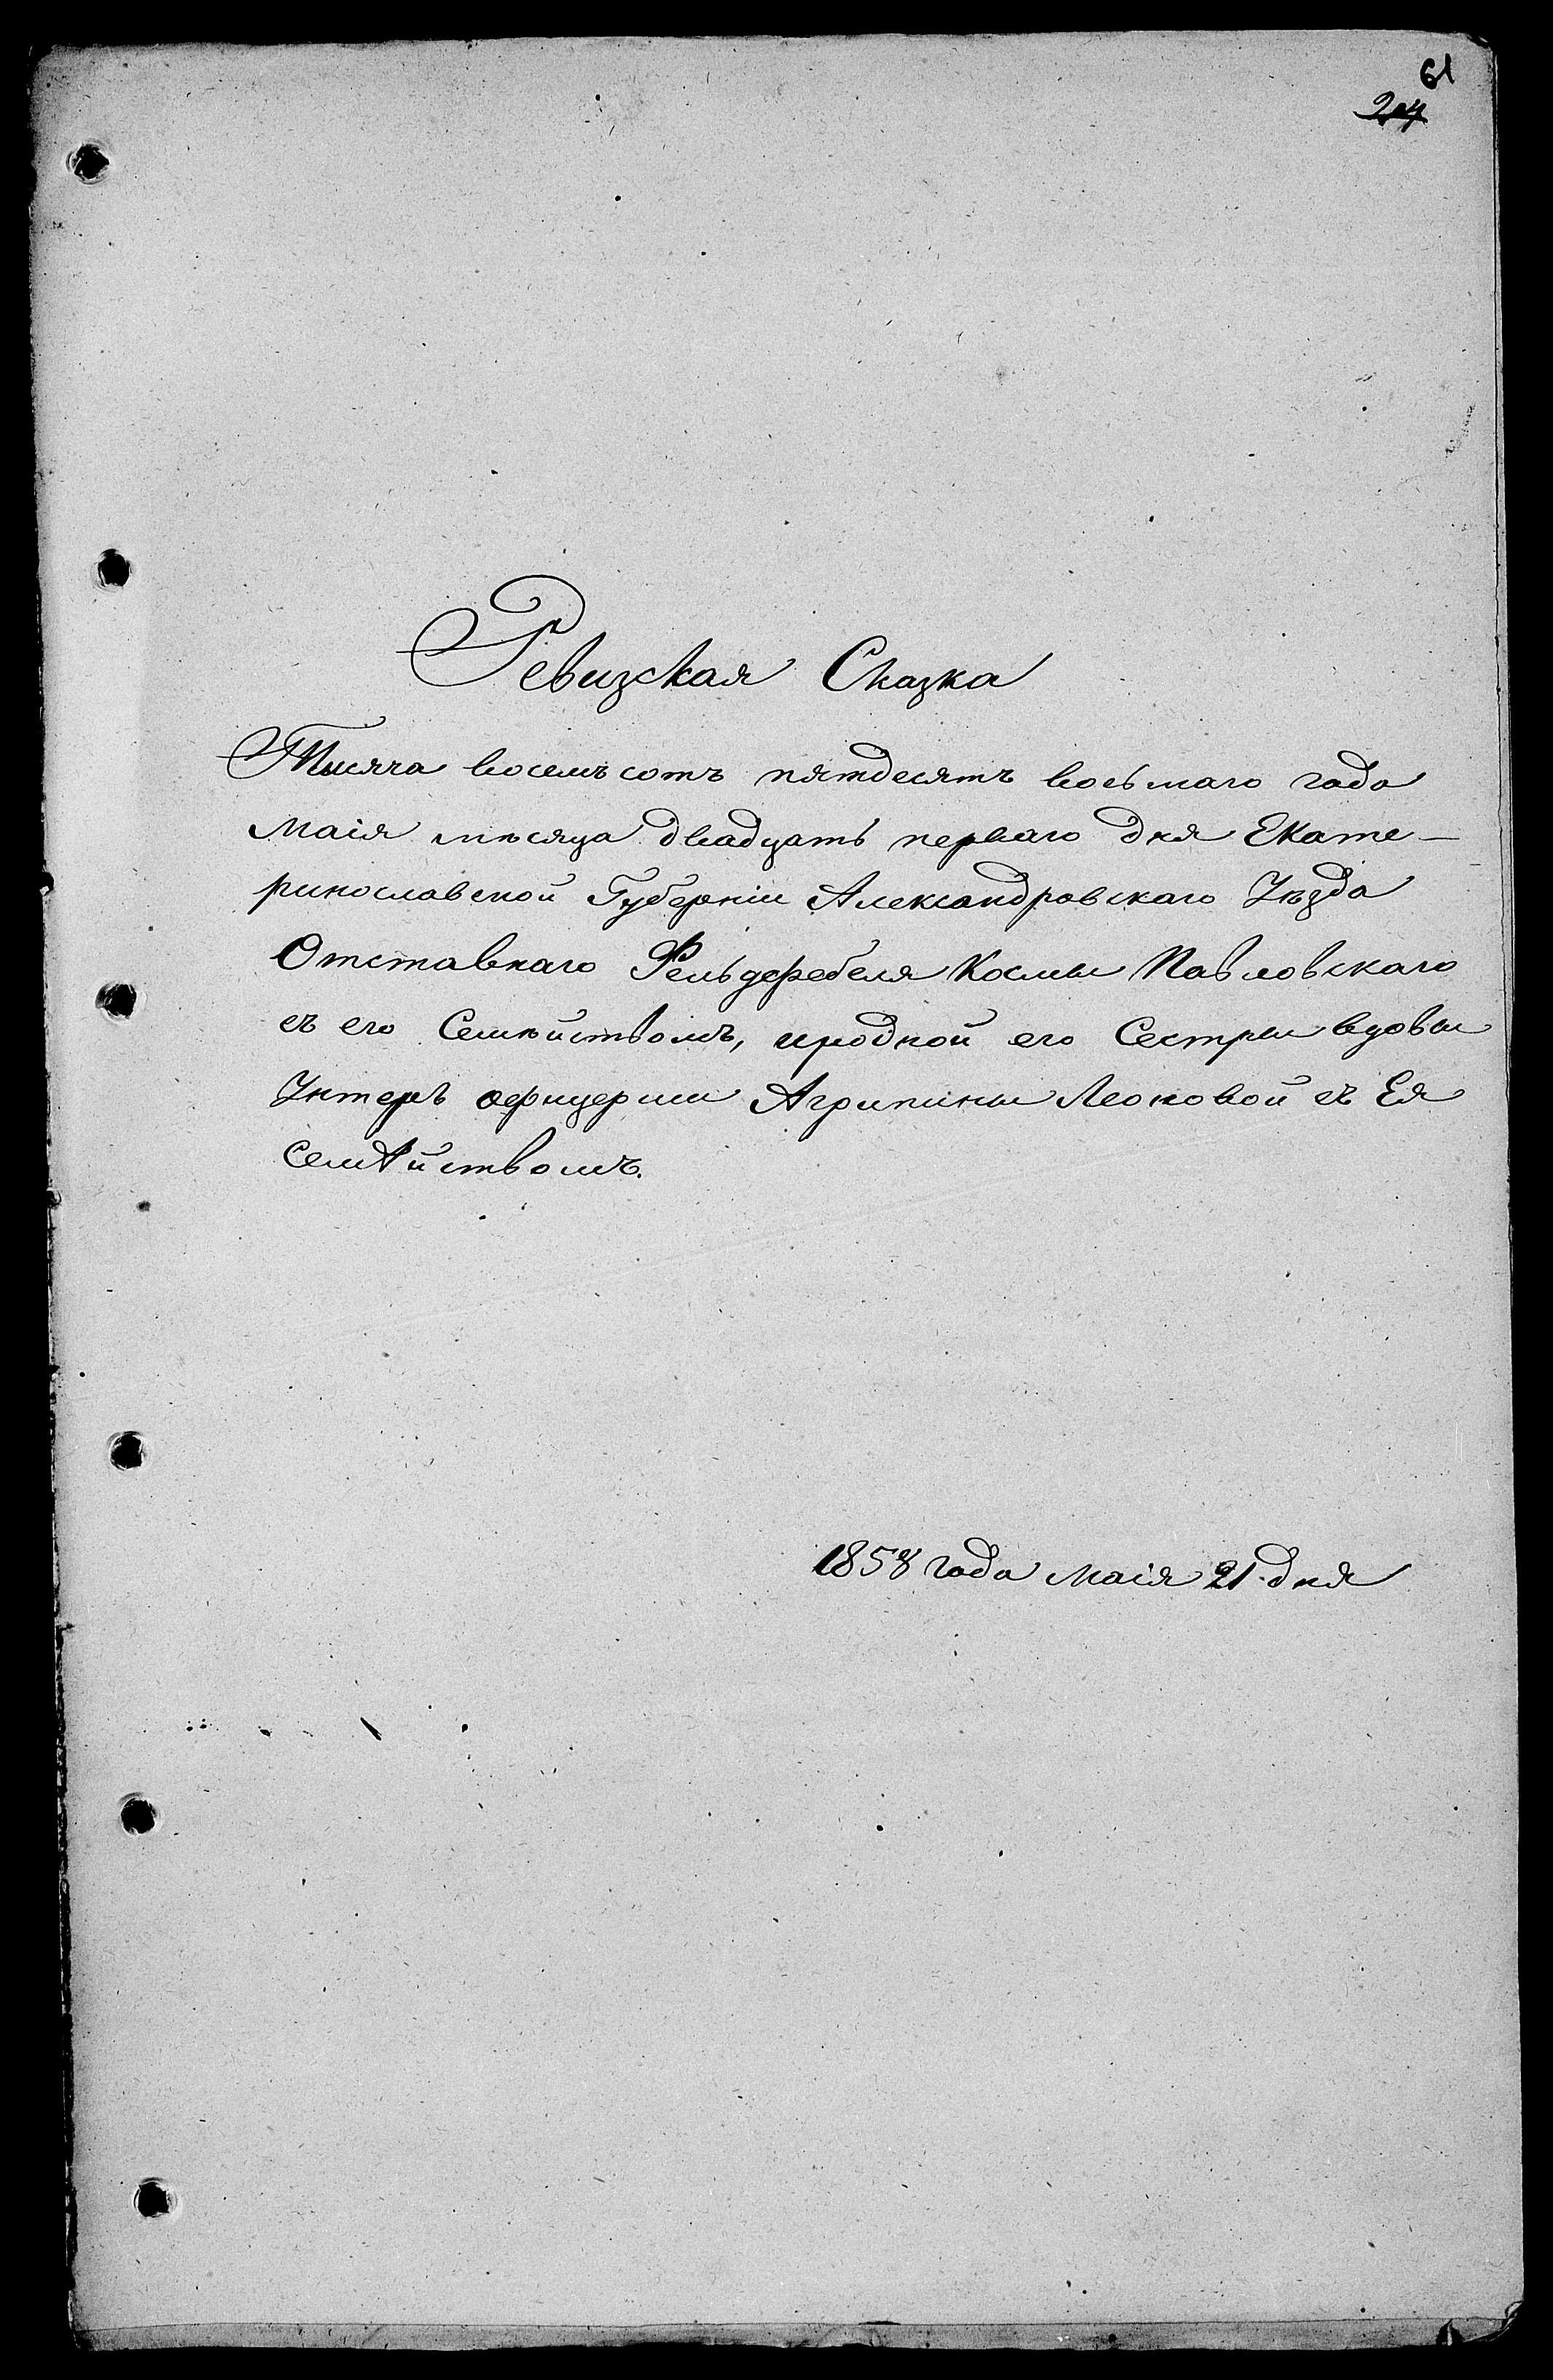 61
204
Ревизская Сказка
Тысяча восемъ сотъ пятдесятъ восьмаго года
Маія мѣсяца двадцать перваго дня Екате-
ринославской Губерніи Александровскаго Уѣзда
Отставнаго Фельдфебеля Космы Павловскаго
съ его Семѣйствомъ, иродной его Сестры вдовы
Унтеръ офицерши Агрипины Леоновой съ Ея
Семѣйствомъ.
1858 года Маія 21 дня